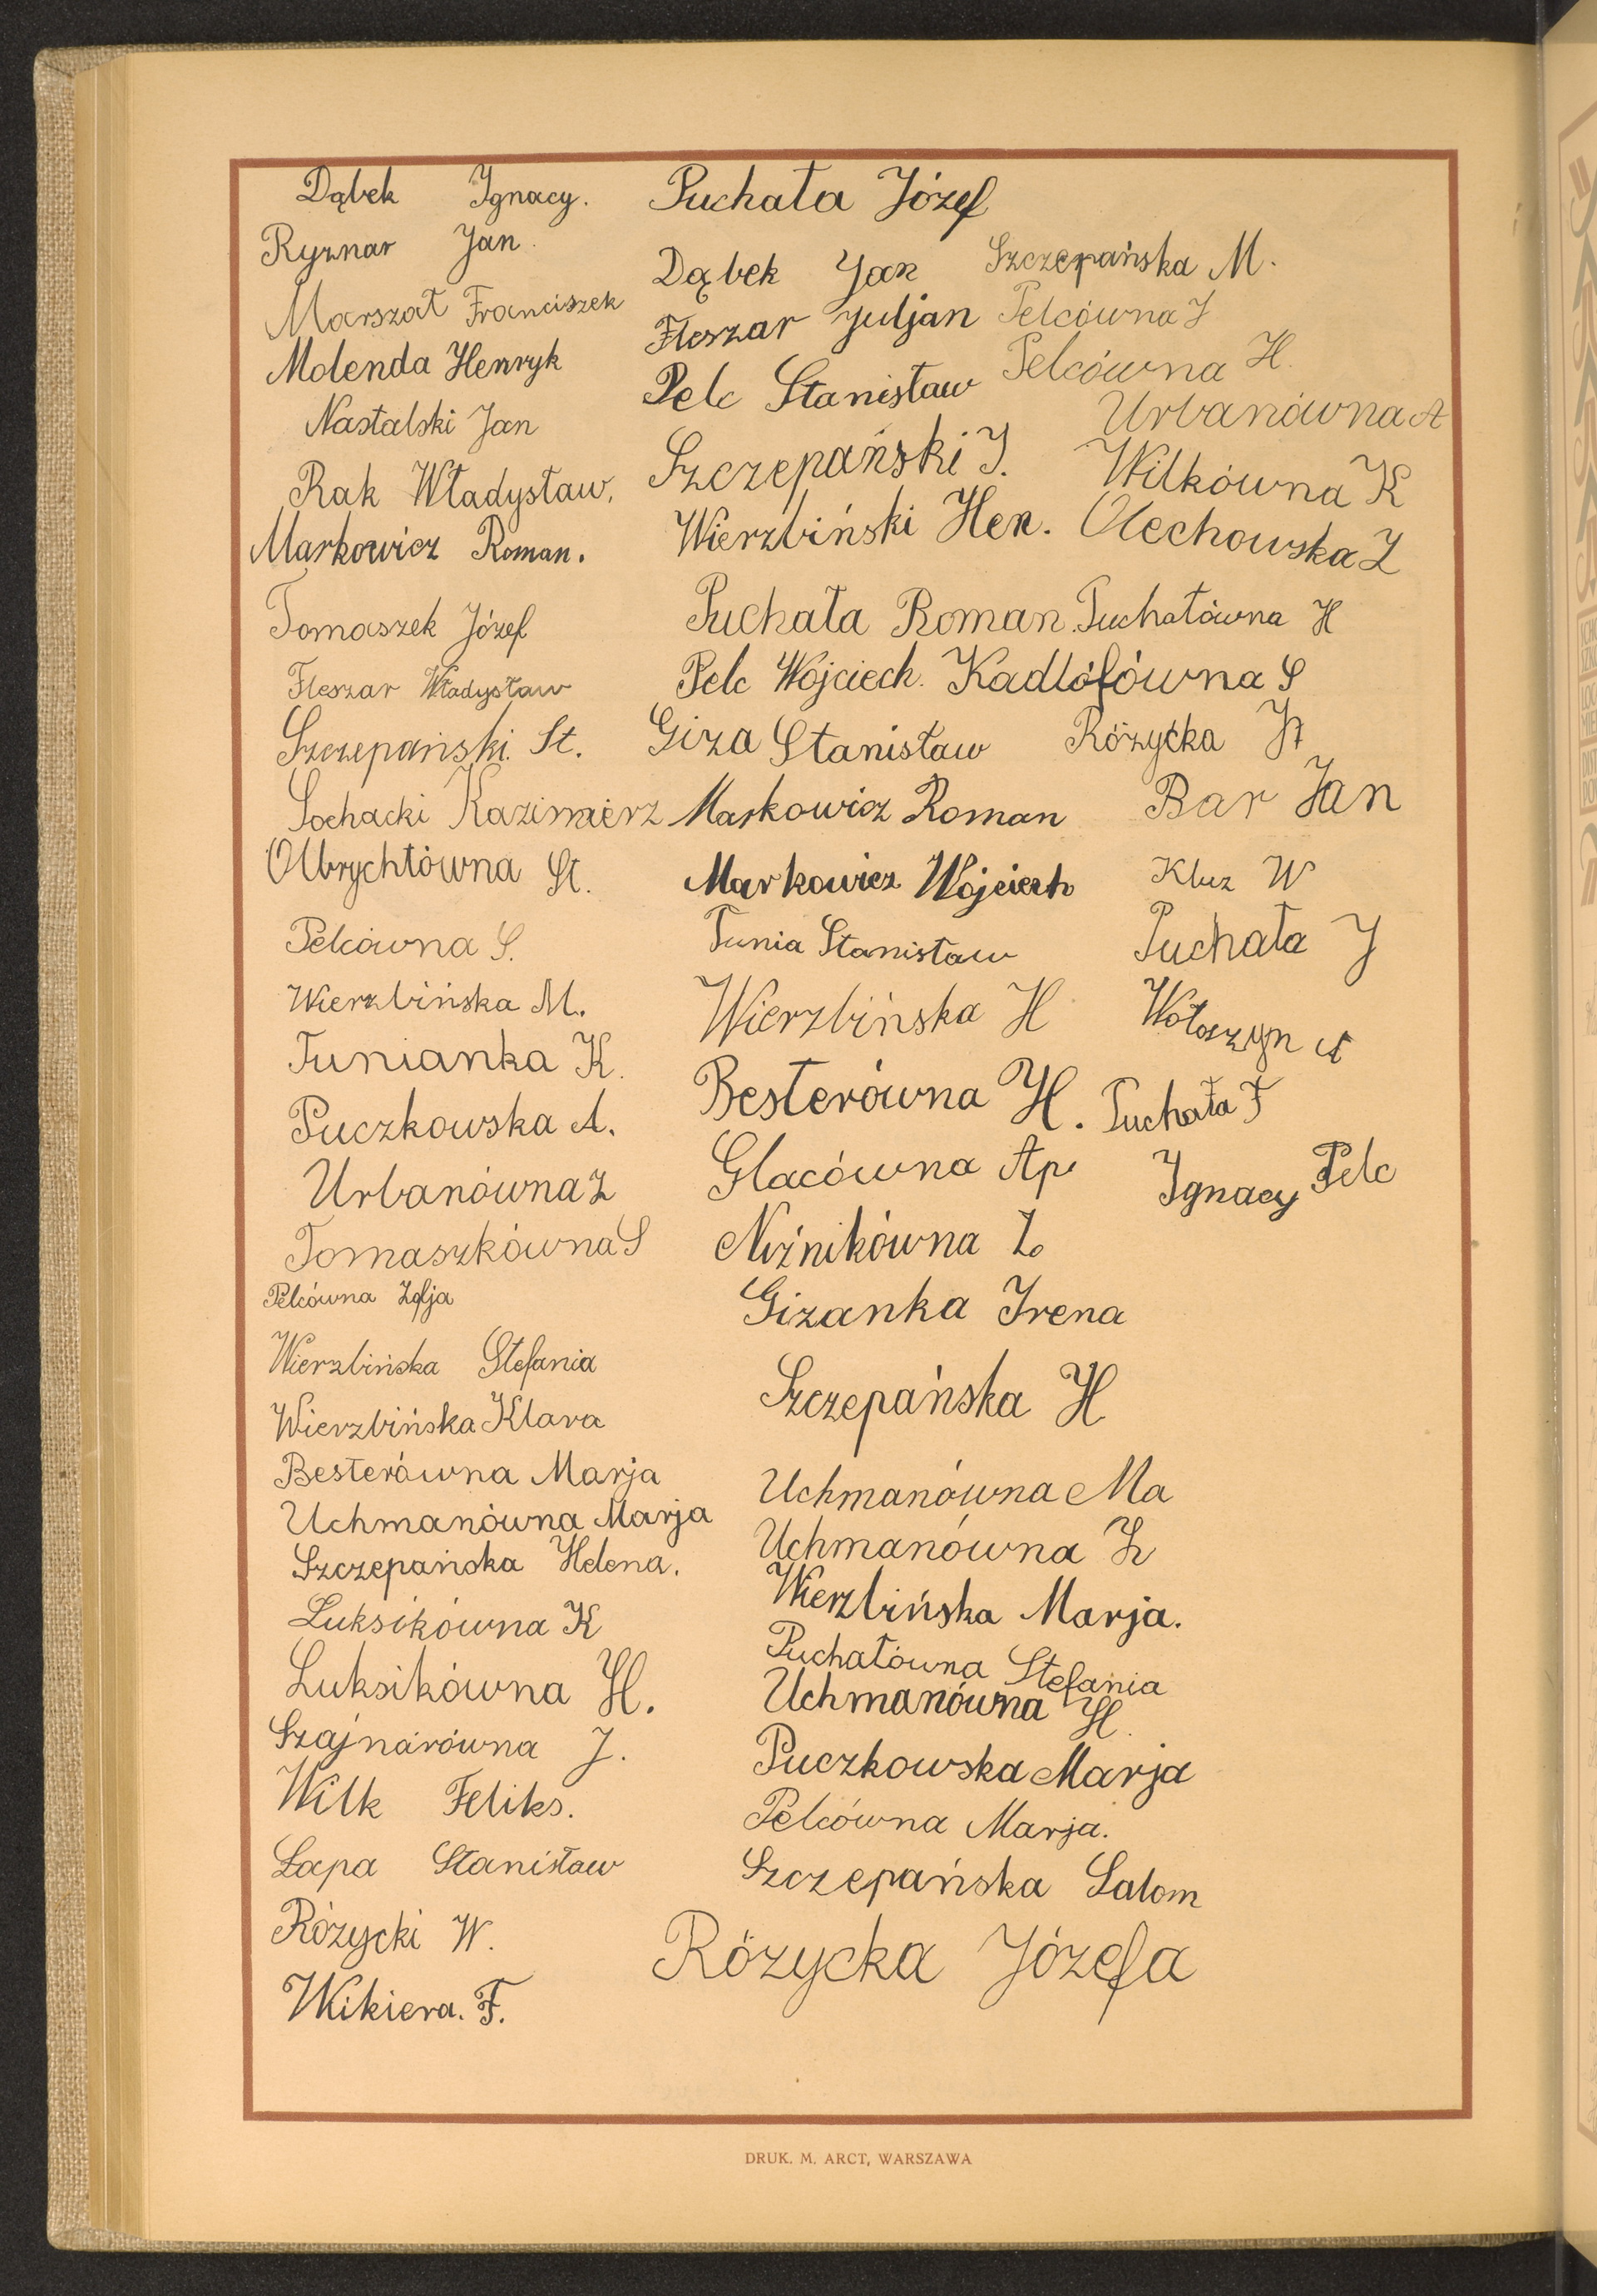 Dąbek Ignacy.
Ryznar Jan.
Marszał Franciszek
Molenda Henryk
Nastalski Jan
Rak Władysław.
Markowicz Roman.
Tomaszek Józef
Fleszar Władysław
Szczepański. St.
Sochacki Kazimierz
Olbrychtówna St.
Pelcówna S.
Wierzbińska M.
Tunianka K.
Puczkowska A.
Urbanówna Z
Tomaszkówna S
Pelcówna Zofja
Wierzbińska Stefania
Wierzbińska Klara
Besterówna Marja
Uchmanówna Marja
Szczepańska Helena.
Luksikówna K
Luksikówna H.
Szajnarówna J.
Wilk Feliks.
Łapa Stanisław
Różycki W.
Wikiera. F.
Puchała Józef
Dąbek Jan
Fleszar Juljan
Pelc Stanisław
Szczepański J.
Wierzbiński Hen.
Puchała Roman.
Pelc Wojciech.
Giza Stanisław
Markowicz Roman
Markowicz Wojciech
Tunia Stanisław
Wierzbińska H
Besterówna H.
Glacówna Ap.
Niżnikówna Z.
Gizanka Irena
Szczepańska H
Uchmanówna Ma
Uchmanówna Z
Wierzbińska Marja.
Puchałówna Stefania
Uchmanówna H.
Puczkowska Marja
Pelcówna Marja.
Szczepańska Salom
Różycka Józefa
Szczepańska M.
Pelcówna J
Pelcówna H.
Urbanówna A
Wilkówna K
Olechowska Z
Puchałówna H
Kadlófówna S
Różycka
Bar Jan
Kluz W
Puchała J
Wołoszyn A
Puchała F
Ignacy Pelc
DRUK. M. ARCT, WARSZAWA